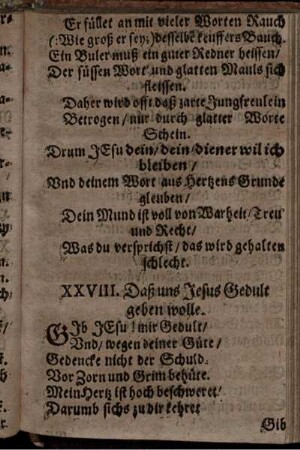 Er füllet an mit vieler Worten Rauch
(:Wie groß er sey:) desselbē keuffers Bauch.
Ein Buler muß ein guter Redner heissen/
Der süssen Wort und glatten Mauls sich
fleissen.
Daher wird offt daß zarte Jungfreulein
Betrogen/ nur durch glatter Worte
Schein.
Drum JEsu dein/ dein/ diener wil ich
bleiben/
Vnd deinem Wort aus Hertzens Grunde
gleuben/
Dein Mund ist voll von Warheit/ Treu
und Recht/
Was du versprichst/ das wird gehalten
schlecht.
XXVIII. Daß uns Jesus Gedult
geben wolle.
GIb JEsu! mir Gedult/
Vnd/ wegen deiner Güte/
Gedencke nicht der Schuld.
Vor Zorn und Grim behüte.
Mein Hertz ist hoch beschweret/
Darumb sichs zu dir kehret
Gib